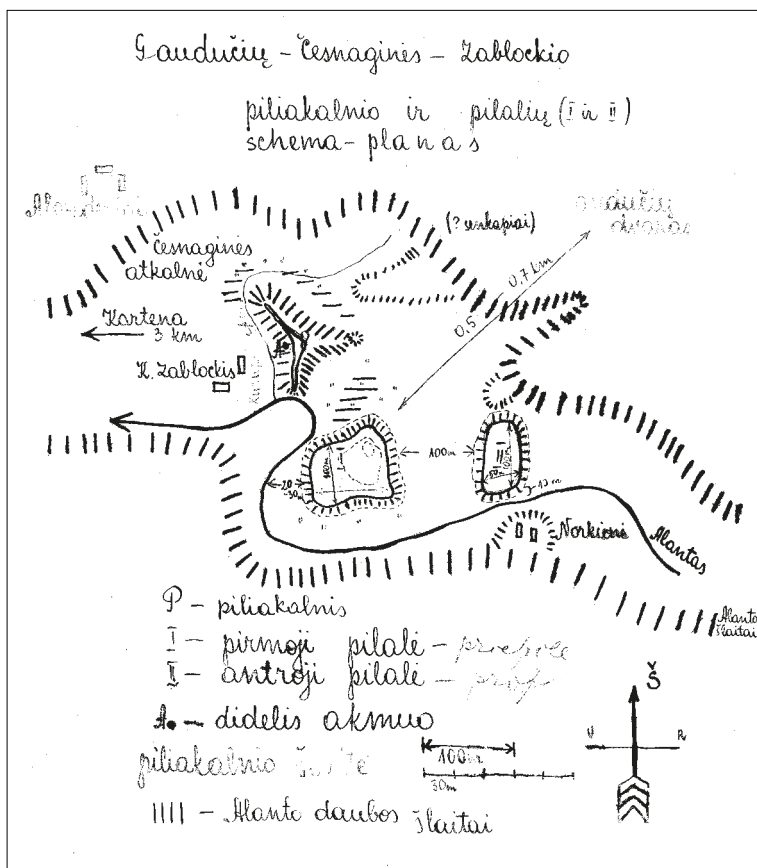 Gaudučių - Česnaginės - Zablockio
piliakalnio ir pilalių (I ir II)
schema - planas
Česnaginės
atkalnė
(? senkapiai)
dvaras
0,5
0,7 km
Kartena
3 km
K. Zablockis
A.
P
I
II
100m
100m
20
30m
50m
5-10 m
Norkienė
Alantas
Alanto
šlaitai
P - piliakalnis
I - pirmoji pilalė -
II - antroji pilalė -
A. - didelis akmuo
piliakalnio
|||| - Alanto daubos šlaitai
100m
30m
Š
V
R